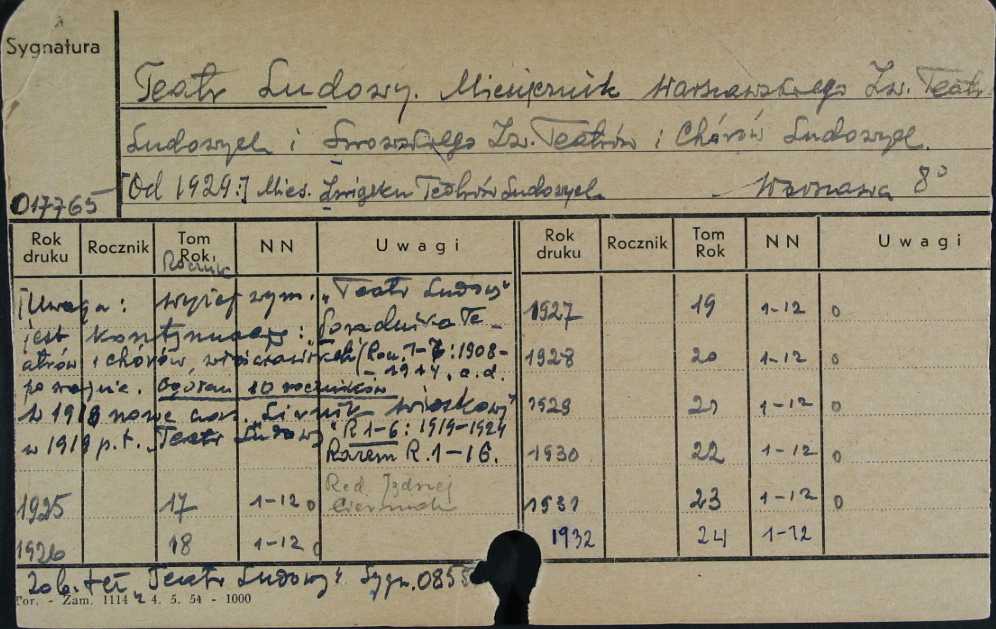 Sygnatura
Teatr Ludowy. Miesięcznik Warszawskiego Zw. Teatr
Ludowych i Lwowskiego Zw. Teatrów i Chórów Ludowych.
[Od 1929:] Mies. Związku Teatrów Ludowych - Warszawa 8°
017765
Rok druku Rocznik Tom Rok NN Uwagi Rok druku Rocznik Tom Rok NN Uwagi
Rocznik
[Uwaga: wyżej wym. "Teatr Ludowy"
jest kontynuacją: "Poradnika Te-
atrów i chórów włościańskich" (Rocz. 1-7: 1908-
- 1914, a.d.
po wojnie. Ogółem 10 roczników
w 1918 nowe cza. "Siewnik wioskowy"
w 1919 p.t. "Teatr Ludowy" R 1-6: 1919-1924
Razem R. 1-16.
1925 17 1-12 o Red. Jędrzej
Cierniak
1926 18 1-12 o
1927 19 1-12 o
1928 20 1-12 o
1929 21 1-12 o
1930 22 1-12 o
1931 23 1-12 o
1932 24 1-12
Zob. też "Teatr Ludowy". Sygn. 0855
Tor. - Zam. 1114 4. 5. 54 - 1000